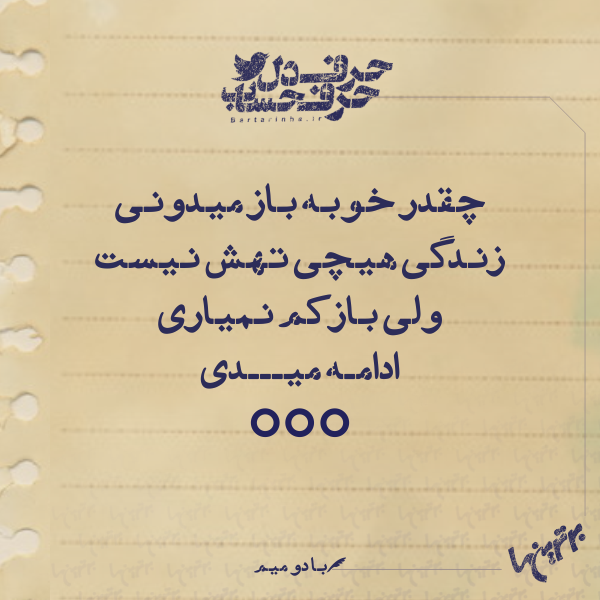 حرف دل
حرف حساب
Bartarinha.ir
چقدر خوبه باز میدونی
زندگی هیچی تهش نیست
ولی باز کم نمیاری
ادامه میـــدی
○○○
با دو میم
برترین‌ها